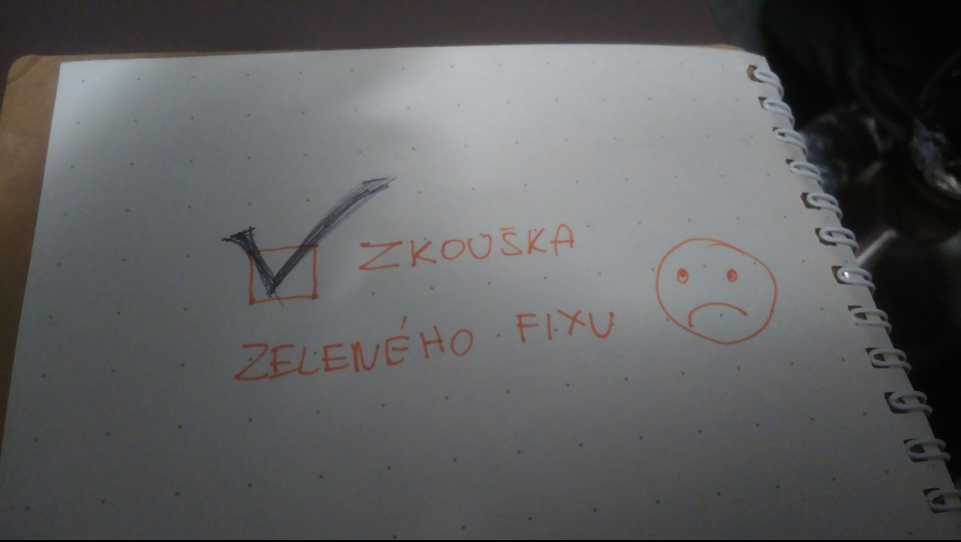 ZKOUŠKA
ZELENÉHO FIXU